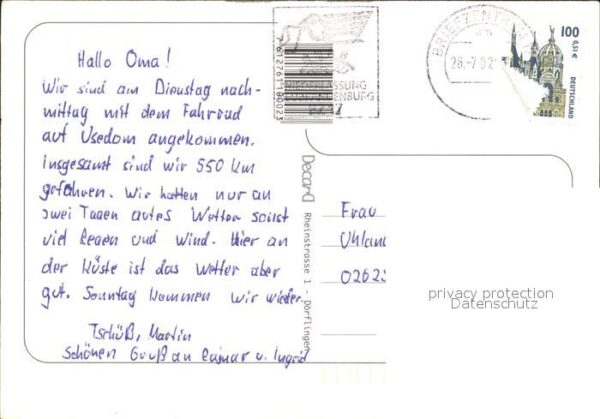 Hallo Oma!
Wir sind am Dienstag nach-
mittag mit dem Fahrrad
auf Usedom angekommen.
Insgesamt sind wir 550 km
gefahren. Wir hatten nur an
zwei Tagen gutes Wetter sonst
viel Regen und Wind. Hier an
der Küste ist das Wetter aber
gut. Sonntag kommen wir wieder.
Tschüß, Martin
Schönen Gruß an Raimar u. Ingrid
7612761180023
NIEDERLASSUNG
BRIEFZENTRUM
26.-7.02
100
0,51€
DEUTSCHLAND
Decard
Rheinstrasse 1
Dörflingen
Frau
Uhland
02625
privacy protection
Datenschutz